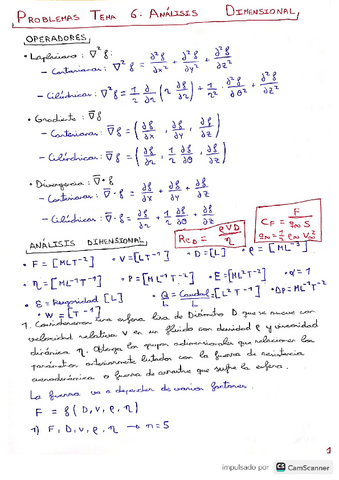 PROBLEMAS TEMA 6. ANÁLISIS DIMENSIONAL
OPERADORES
• Laplaciano: ∇²f:
– Cartesianas: ∇²f = ∂²f/∂x² + ∂²f/∂y² + ∂²f/∂z²
– Cilíndricas: ∇²f = 1/r ∂/∂r (r ∂f/∂r) + 1/r² · ∂²f/∂θ² + ∂²f/∂z²
• Gradiente: ∇f
– Cartesianas: ∇f = (∂f/∂x, ∂f/∂y, ∂f/∂z)
– Cilíndricas: ∇f = (∂f/∂r, 1/r ∂f/∂θ, ∂f/∂z)
• Divergencia: ∇·f
– Cartesianas: ∇·f = ∂f/∂x + ∂f/∂y + ∂f/∂z
– Cilíndricas: ∇·f = ∂f/∂r + 1/r ∂f/∂θ + ∂f/∂z
ReD = ρVD/η
CF = F/q∞ S
q∞ = 1/2 ρ∞ V∞²
ANÁLISIS DIMENSIONAL
• F = [MLT⁻²] • V = [LT⁻¹] • D = [L] • ρ = [ML⁻³]
• η = [ML⁻¹T⁻¹] • P = [ML⁻¹T⁻²] • E = [ML²T⁻²] • α = 1
• ε = Rugosidad [L] • Q/L = Caudal/L = [L²T⁻¹] • ΔP = ML⁻¹T⁻²
• W = [T⁻¹]
1. Consideremos una esfera lisa de Diámetro D que se mueve con
velocidad relativa V en un fluido con densidad ρ y viscosidad
dinámica η. Obtenga los grupos adimensionales que relacionen los
parámetros anteriormente listados con la fuerza de resistencia
aerodinámica o fuerza de arrastre que sufre la esfera.
La fuerza va a depender de varios factores.
F = f(D, V, ρ, η)
1) F, D, V, ρ, η → n=5
1
impulsado por CS CamScanner